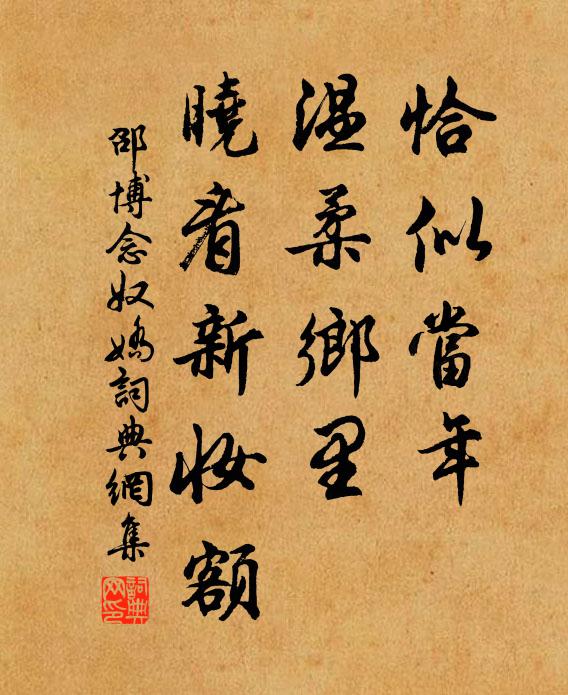 恰似當年
溫柔鄉里
曉看新妝額
邵博念奴嬌詞典網集
詞典
网印